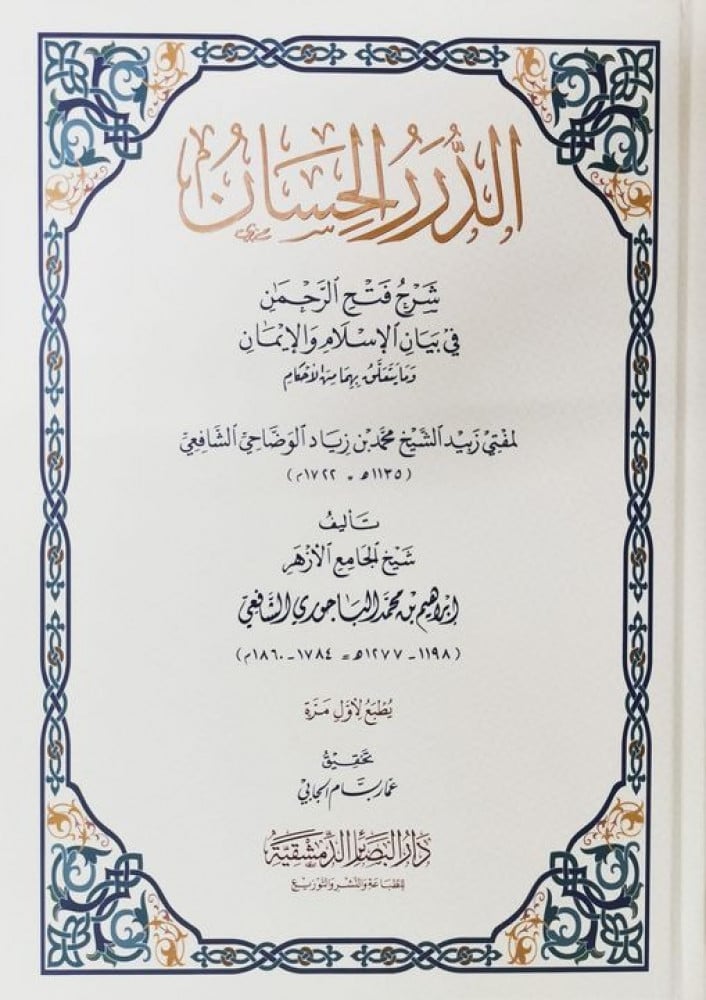 الدُّرَرُ الْحِسَانُ
شَرْحُ فَتْحِ الرَّحْمَنِ
فِي بَيَانِ الْإِسْلَامِ وَالْإِيمَانِ
وَمَا يَتَعَلَّقُ بِهِمَا مِنَ الْأَحْكَامِ
لمفتي زبيد الشيخ محمد بن زياد الوضاحي الشافعي
(١١٣٥هـ = ١٧٢٢م)
تأليف
شيخ الجامع الأزهر
إبراهيم بن محمد الباجوري الشافعي
(١١٩٨-١٢٧٧هـ = ١٧٨٤-١٨٦٠م)
يُطْبَعُ لِأَوَّلِ مَرَّةٍ
تحقيق
عمار بسام الجابي
دار البصائر الدمشقية
للطباعة والنشر والتوزيع